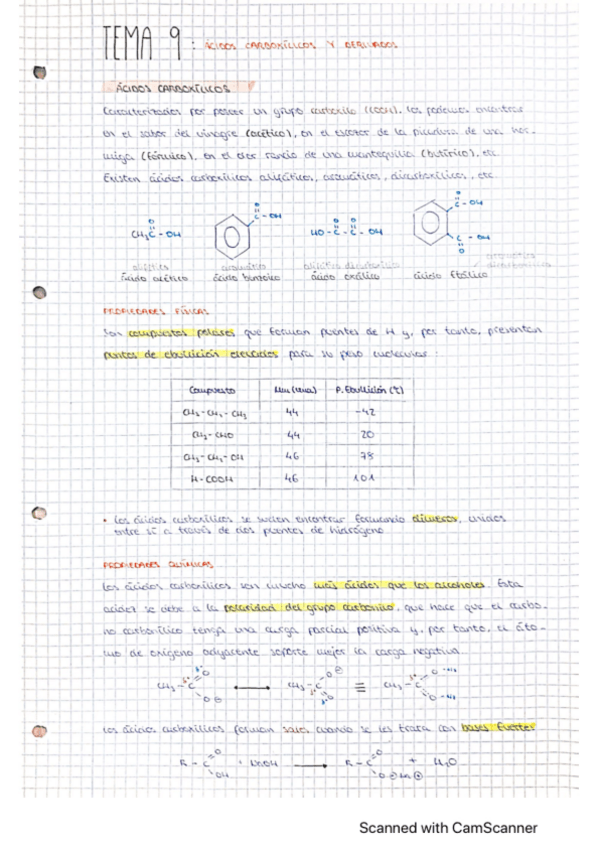 TEMA 9: ÁCIDOS CARBOXÍLICOS Y DERIVADOS
ÁCIDOS CARBOXÍLICOS
Caracterizados por poseer un grupo carboxilo (COOH), los podemos encontrar
en el sabor del vinagre (acético), en el escozor de la picadura de una hor-
miga (fórmico), en el olor rancio de una mantequilla (butírico), etc.
Existen ácidos carboxílicos alifáticos, aromáticos, dicarboxílicos, etc.
O O O O O
CH3C-OH C-OH HO-C-C-OH C-OH
C-OH
O
alifático aromático alifático dicarboxílico aromático
dicarboxílico
ácido acético ácido benzoico ácido oxálico ácido ftálico
PROPIEDADES FÍSICAS
Son compuestos polares que forman puentes de H y, por tanto, presentan
puntos de ebullición elevados para su peso molecular:
Compuesto Mm (uma) P. Ebullición (ºC)
CH3-CH2-CH3 44 -42
CH3-CHO 44 20
CH3-CH2-OH 46 78
H-COOH 46 101
• Los ácidos carboxílicos se suelen encontrar formando dímeros, unidos
entre sí a través de dos puentes de hidrógeno.
PROPIEDADES QUÍMICAS
Los ácidos carboxílicos son mucho más ácidos que los alcoholes. Esta
acidez se debe a la polaridad del grupo carbonilo, que hace que el carbo-
no carbonílico tenga una carga parcial positiva y, por tanto, el áto-
mo de oxígeno adyacente soporte mejor la carga negativa.
CH3-C O O⊖ ⟷ CH3-C O⊖ O ≡ CH3-C O -1/2 O -1/2
Los ácidos carboxílicos forman sales cuando se les trata con bases fuertes
R-C O OH + NaOH → R-C O O⊖Na⊕ + H2O
Scanned with CamScanner